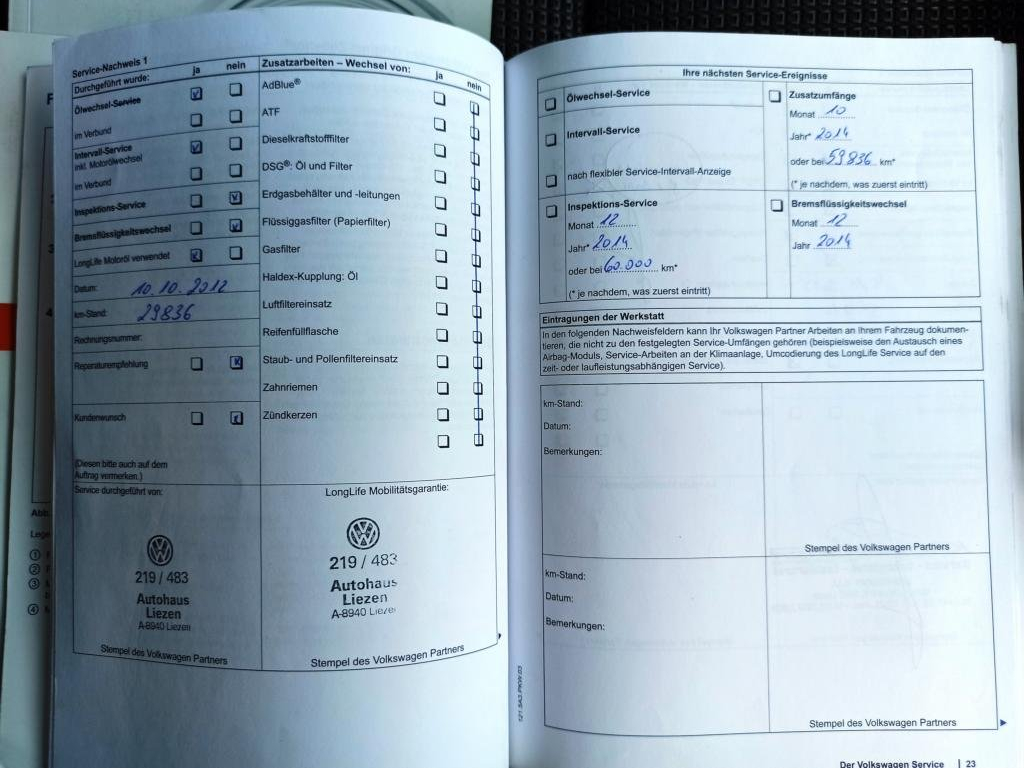 Service-Nachweis 1
Durchgeführt wurde: ja nein
Ölwechsel-Service
im Verbund
Intervall-Service
inkl. Motorölwechsel
im Verbund
Inspektions-Service
Bremsflüssigkeitswechsel
LongLife Motoröl verwendet
Datum: 10.10.2012
km-Stand: 29836
Rechnungsnummer:
Reparaturempfehlung
Kundenwunsch
(Diesen bitte auch auf dem
Auftrag vermerken.)
Service durchgeführt von:
219 / 483
Autohaus
Liezen
A-8940 Liezen
Stempel des Volkswagen Partners
Zusatzarbeiten – Wechsel von: ja nein
AdBlue®
ATF
Dieselkraftstofffilter
DSG®: Öl und Filter
Erdgasbehälter und -leitungen
Flüssiggasfilter (Papierfilter)
Gasfilter
Haldex-Kupplung: Öl
Luftfiltereinsatz
Reifenfüllflasche
Staub- und Pollenfiltereinsatz
Zahnriemen
Zündkerzen
LongLife Mobilitätsgarantie:
219 / 483
Autohaus
Liezen
A-8940 Liezen
Stempel des Volkswagen Partners
Ihre nächsten Service-Ereignisse
Ölwechsel-Service
Intervall-Service
nach flexibler Service-Intervall-Anzeige
Inspektions-Service
Monat 12
Jahr* 2014
oder bei 60.000 km*
(* je nachdem, was zuerst eintritt)
Zusatzumfänge
Monat 10
Jahr* 2014
oder bei 59836 km*
(* je nachdem, was zuerst eintritt)
Bremsflüssigkeitswechsel
Monat 12
Jahr 2014
Eintragungen der Werkstatt
In den folgenden Nachweisfeldern kann Ihr Volkswagen Partner Arbeiten an Ihrem Fahrzeug dokumen-
tieren, die nicht zu den festgelegten Service-Umfängen gehören (beispielsweise den Austausch eines
Airbag-Moduls, Service-Arbeiten an der Klimaanlage, Umcodierung des LongLife Service auf den
zeit- oder laufleistungsabhängigen Service).
km-Stand:
Datum:
Bemerkungen:
Stempel des Volkswagen Partners
km-Stand:
Datum:
Bemerkungen:
Stempel des Volkswagen Partners
121.5A3.PKW.03
Der Volkswagen Service | 23